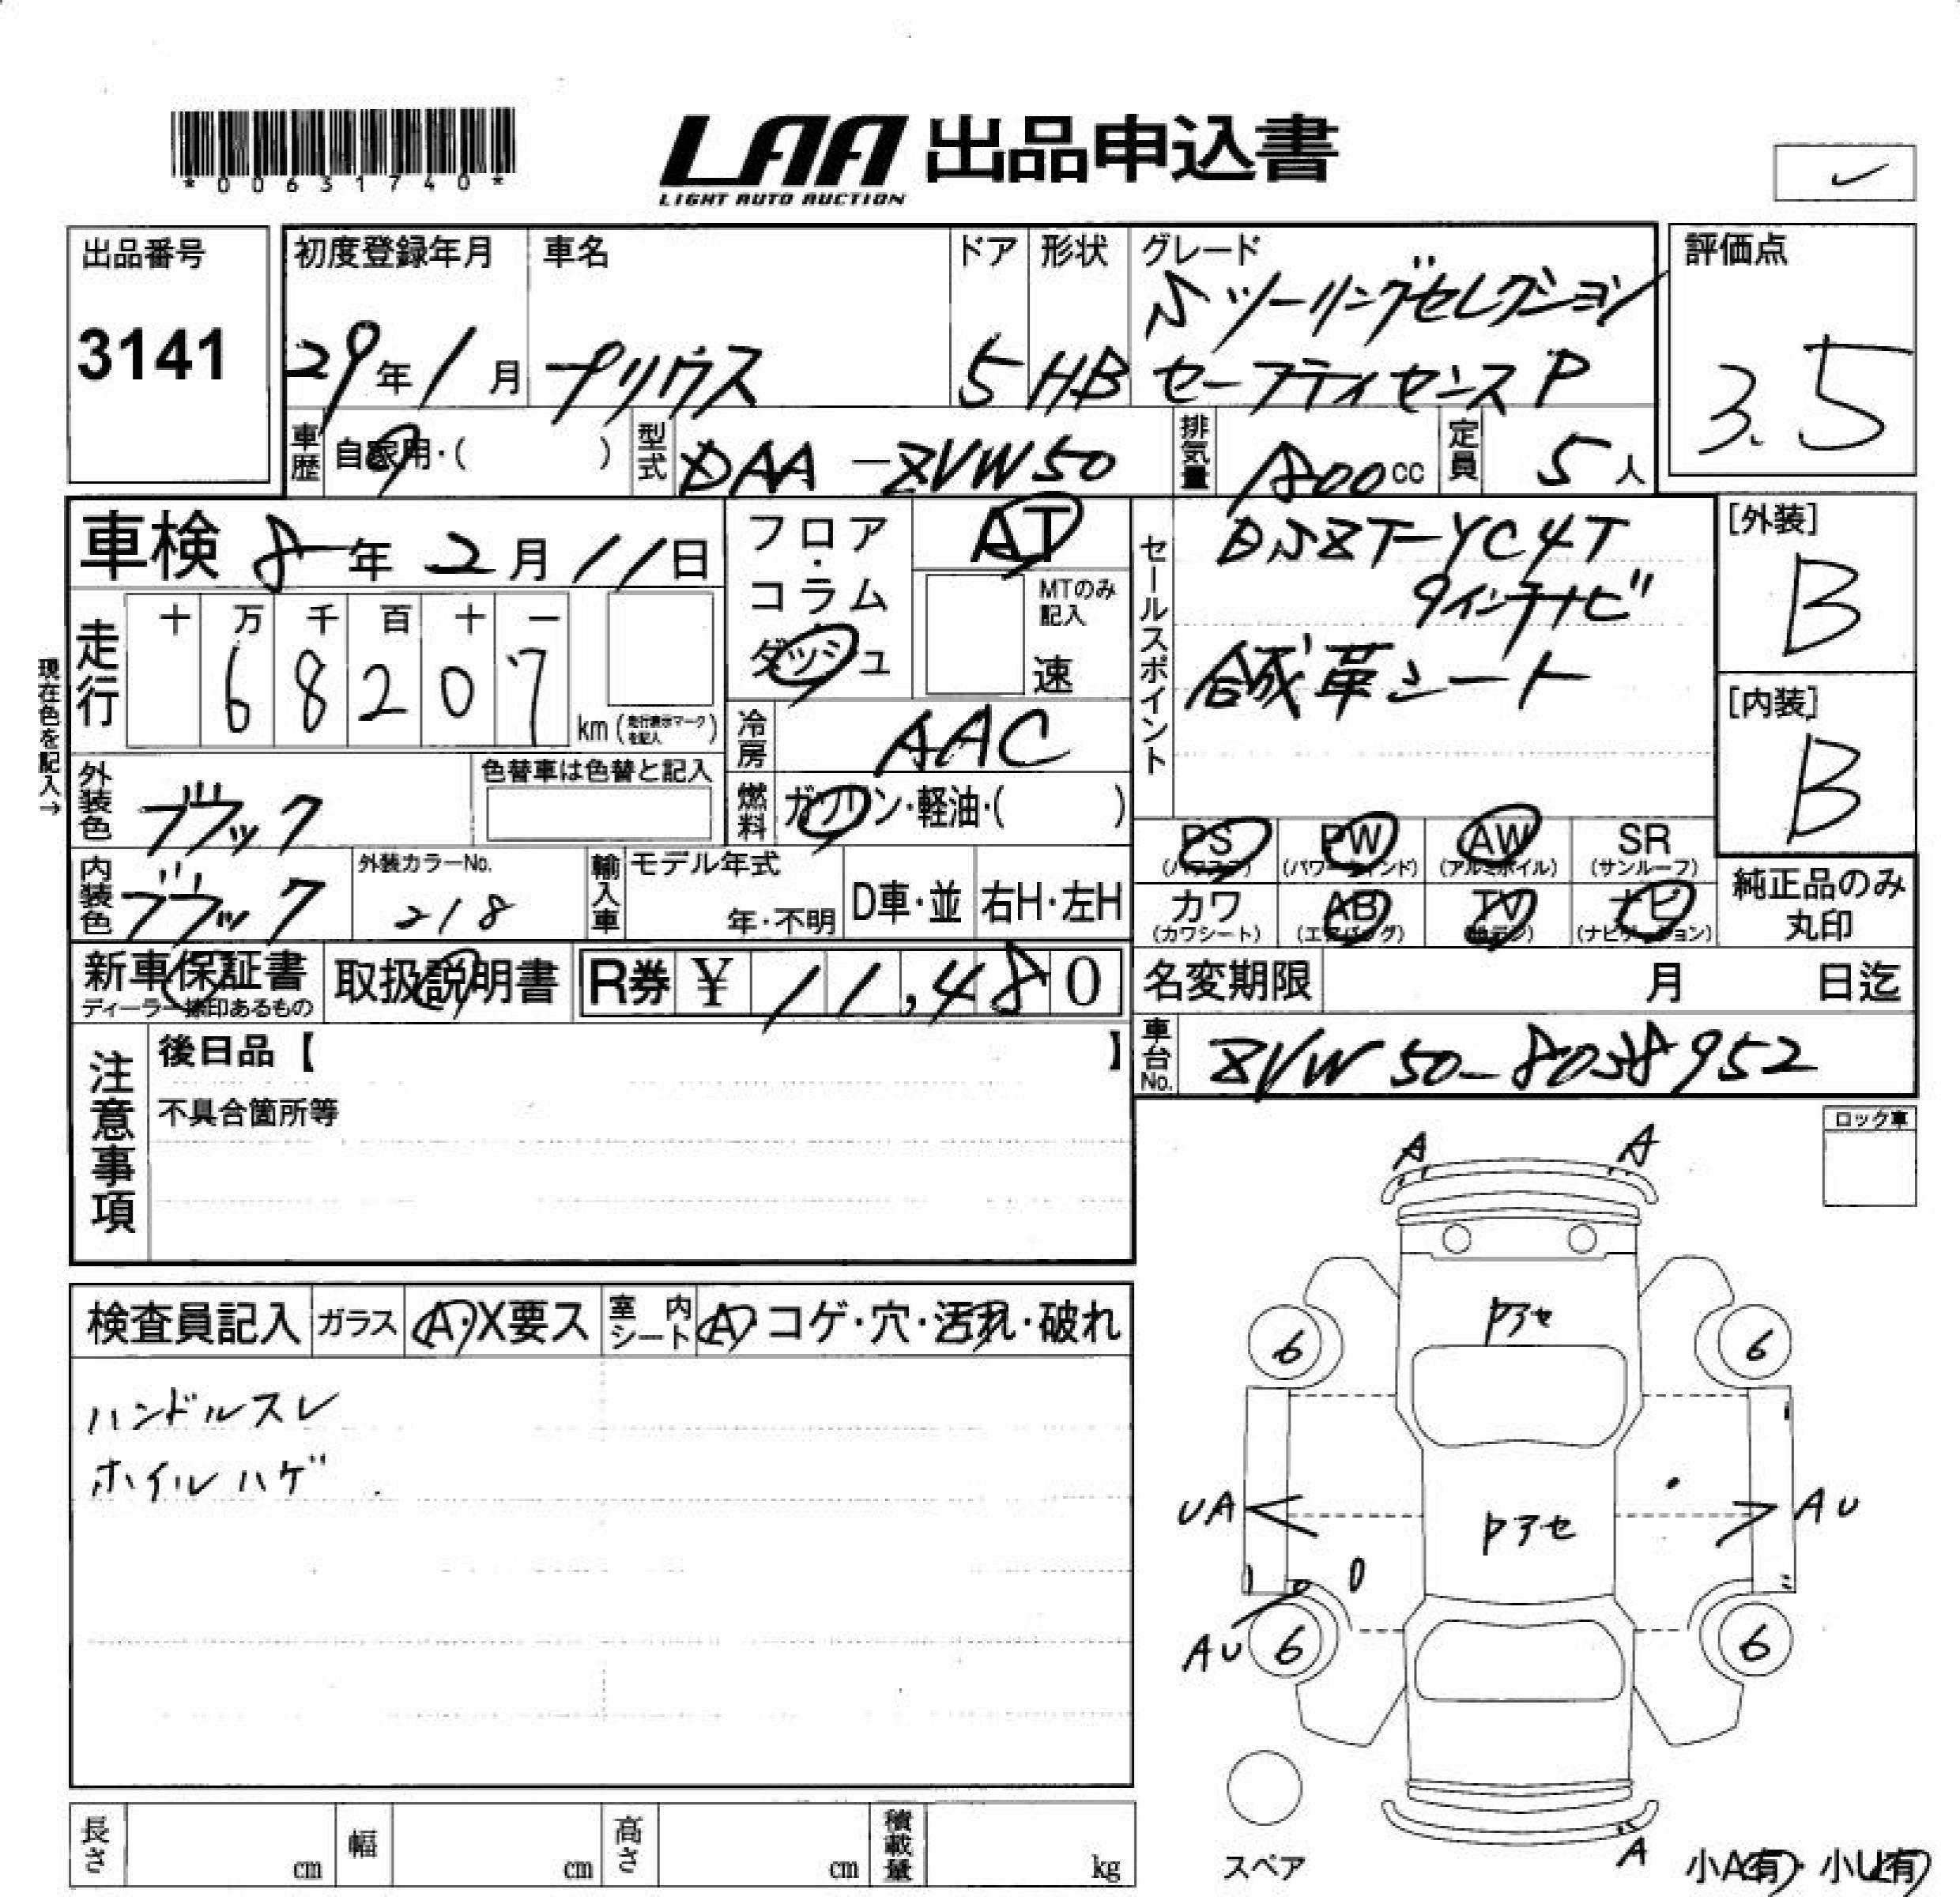 *00631740*
LAA 出品申込書
LIGHT AUTO AUCTION
出品番号
3141
初度登録年月
29年1月
車名
プリウス
ドア
5
形状
HB
グレード
Sツーリングセレクション
セーフティセンスP
評価点
3.5
車歴
自家用・( )
型式
DAA-ZVW50
排気量
1800cc
定員
5人
車検 8年2月11日
現在色を記入→
走行
十 万 千 百 十 一
6 8 2 0 7
km (走行表示マークを記入)
フロア・コラム・ダッシュ
AT
MTのみ記入
速
冷房
AAC
燃料
ガソリン・軽油・( )
セールスポイント
DSZT-YC4T
9インチナビ
合成革シート
[外装]
B
[内装]
B
外装色
ブラック
色替車は色替と記入
内装色
ブラック
外装カラーNo.
218
輸入車
モデル年式
年・不明
D車・並
右H・左H
PS
(パワステ)
PW
(パワーウィンド)
AW
(アルミホイル)
SR
(サンルーフ)
カワ
(カワシート)
AB
(エアバッグ)
TV
ナビ
(ナビゲーション)
純正品のみ
丸印
新車保証書
ディーラー捺印あるもの
取扱説明書
R券 ¥ 11,480
名変期限 月 日迄
車台No.
ZVW50-8038952
注意事項
後日品【 】
不具合箇所等
ロック車
検査員記入
ガラス
A・X要ス
室内シート
A・コゲ・穴・汚れ・破れ
ハンドルスレ
ホイルハゲ
A
A
Pアセ
6
6
UA
Pアセ
AU
AU
6
6
A
スペア
小A(有)・小U(有)
長さ cm
幅 cm
高さ cm
積載量 kg